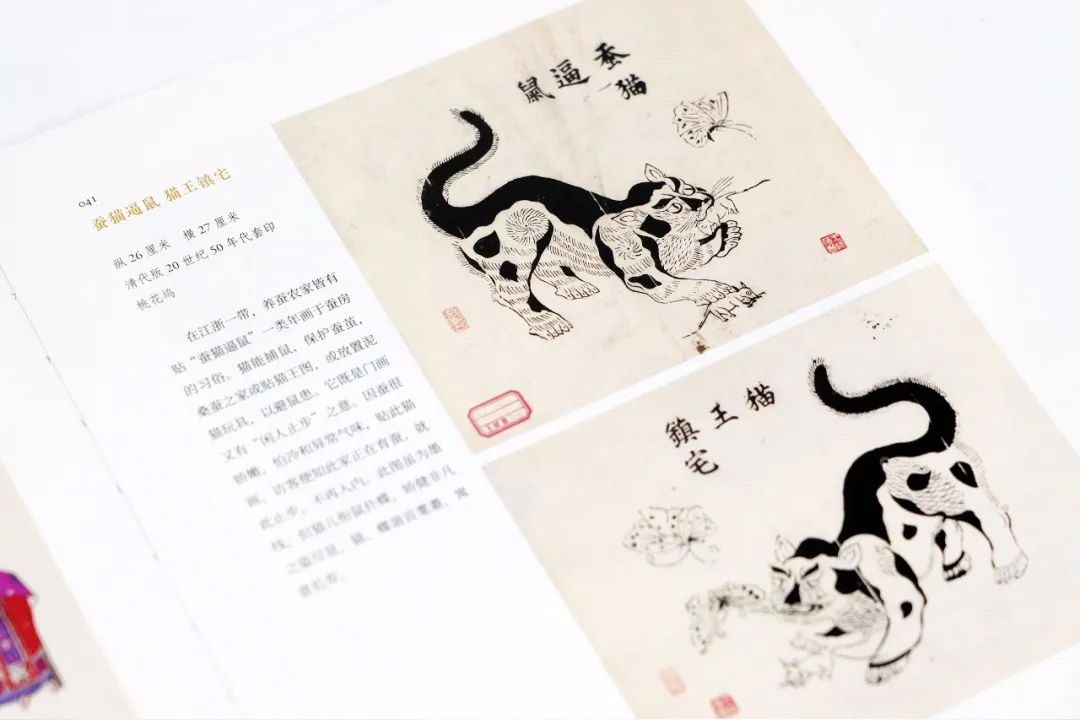 041
蚕猫逼鼠 猫王镇宅
纵 26 厘米 横 27 厘米
清代版 20 世纪 50 年代套印
桃花坞
在江浙一带,养蚕农家皆有
贴“蚕猫逼鼠”一类年画于蚕房
的习俗。猫能捕鼠,保护蚕茧,
桑蚕之家或贴猫王图,或放置泥
猫玩具,以避鼠患。它既是门画
又有“闲人止步”之意。因蚕很
娇嫩,怕冷和异常气味,贴此猫
画,访客便知此家正在育蚕,就
此止步,不再入内。此图虽为墨
线,但猫儿衔鼠扑蝶,矫健非凡
之姿可显,猫、蝶谐音耄耋,寓
意长寿。
蚕猫
逼
鼠
猫
王
鎮宅